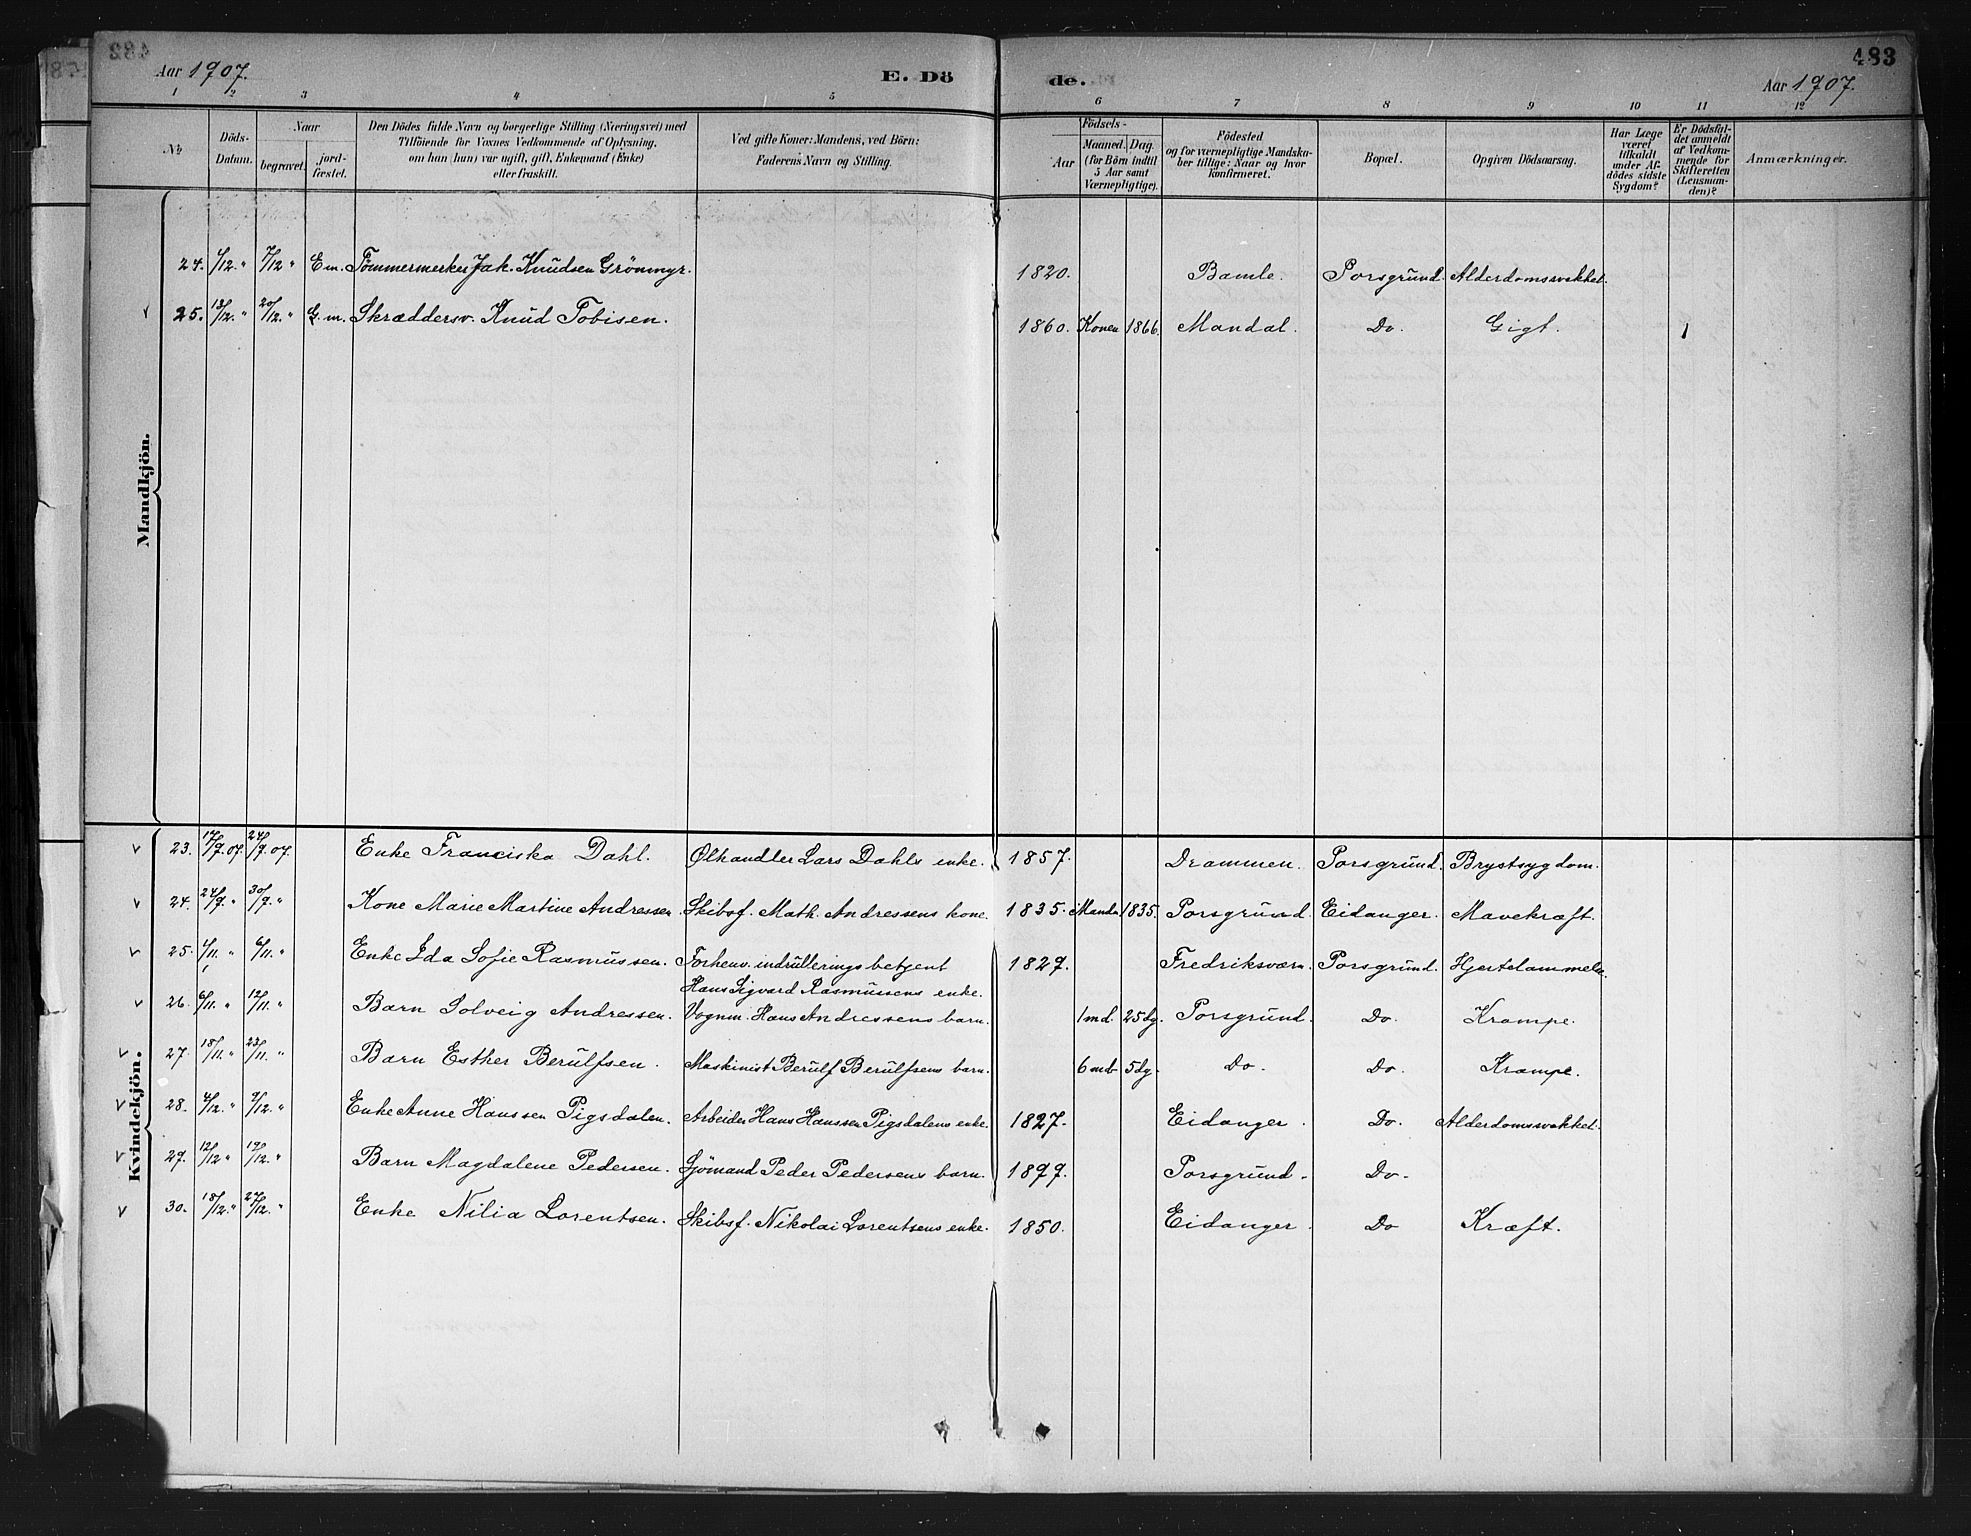 483
Aar 1907.
E. Dö de.
Aar 1907.
1 2 3 4 5 6 7 8 9 10 11 12
No
Döds-Datum.
Naar
begravet.
jord-fæstet.
Den Dödes fulde Navn og borgerlige Stilling (Næringsvei) med
Tilföiende for Voxnes Vedkommende af Oplysning,
om han (hun) var ugift, gift, Enkemand (Enke)
eller fraskilt.
Ved gifte Koner: Mandens, ved Börn:
Faderens Navn og Stilling.
Födsels-
Aar
Maaned. Dag.
(for Börn indtil
5 Aar samt
Værnepligtige).
Födested
og for værnepligtige Mandska-
ber tillige: Naar og hvor
konfirmeret.
Bopæl.
Opgiven Dödsaarsag.
Har Læge
været
tilkaldt
under Af-
dödes sidste
Sygdom?
Er Dödsfal-
det anmeldt
af Vedkom-
mende for
Skifteretten
(Lensman-
den)?
Anmærkninger.
Mandkjön.
24. 4/12. " 7/12 " E m. Tømmermerker Jak. Knudsen Grönmyr. 1820. Bamle. Porsgrund. Alderdomssvakhet.
25. 13/12. " 20/12. " G. m. Skræddersv. Knud Tobisen. 1860. Konen 1866. Mandal. Do. Gigt. 1
Kvindekjön.
23. 17/9. 07. 24/9. 07. Enke Franciska Dahl. Ølhandler Lars Dahls enke. 1857. Drammen. Porsgrund. Brystsygdom.
24. 24/9. " 30/9. " Kone Marie Martine Andressen Skibsf. Math. Andressens kone. 1835. Manden 1835. Porsgrund. Eidanger. Mavekræft.
25. 4/11. " 6/11. " Enke Ida Sofie Rasmussen. Forhenv. indrulleringsbetjent 1829. Fredriksværn. Porsgrund. Hjertelammelse.
Hans Sigvard Rasmussens enke.
26. 6/11. " 12/11. " Barn Solveig Andressen. Vognm. Hans Andressens barn. 1 md. 25 dg. Porsgrund. Do. Krampe.
27. 18/11. " 23/11. " Barn Esther Berulfsen. Maskinist Berulf Berulfsens barn. 6 md 5 dg. Do. Do. Krampe.
28. 4/12. " 9/12. " Enke Anne Hanssen Pigsdalen. Arbeider Hans Hanssen Pigsdalens enke. 1827. Eidanger. Do. Alderdomssvakhet.
29. 12/12 " 19/12. " Barn Magdalene Pedersen. Sjömand Peder Pedersens barn. 1899. Porsgrund. Do.
30. 18/12. " 27/12. " Enke Nilia Lorentsen. Skibsf. Nikolai Lorentsens enke. 1850. Eidanger. Do Kræft.